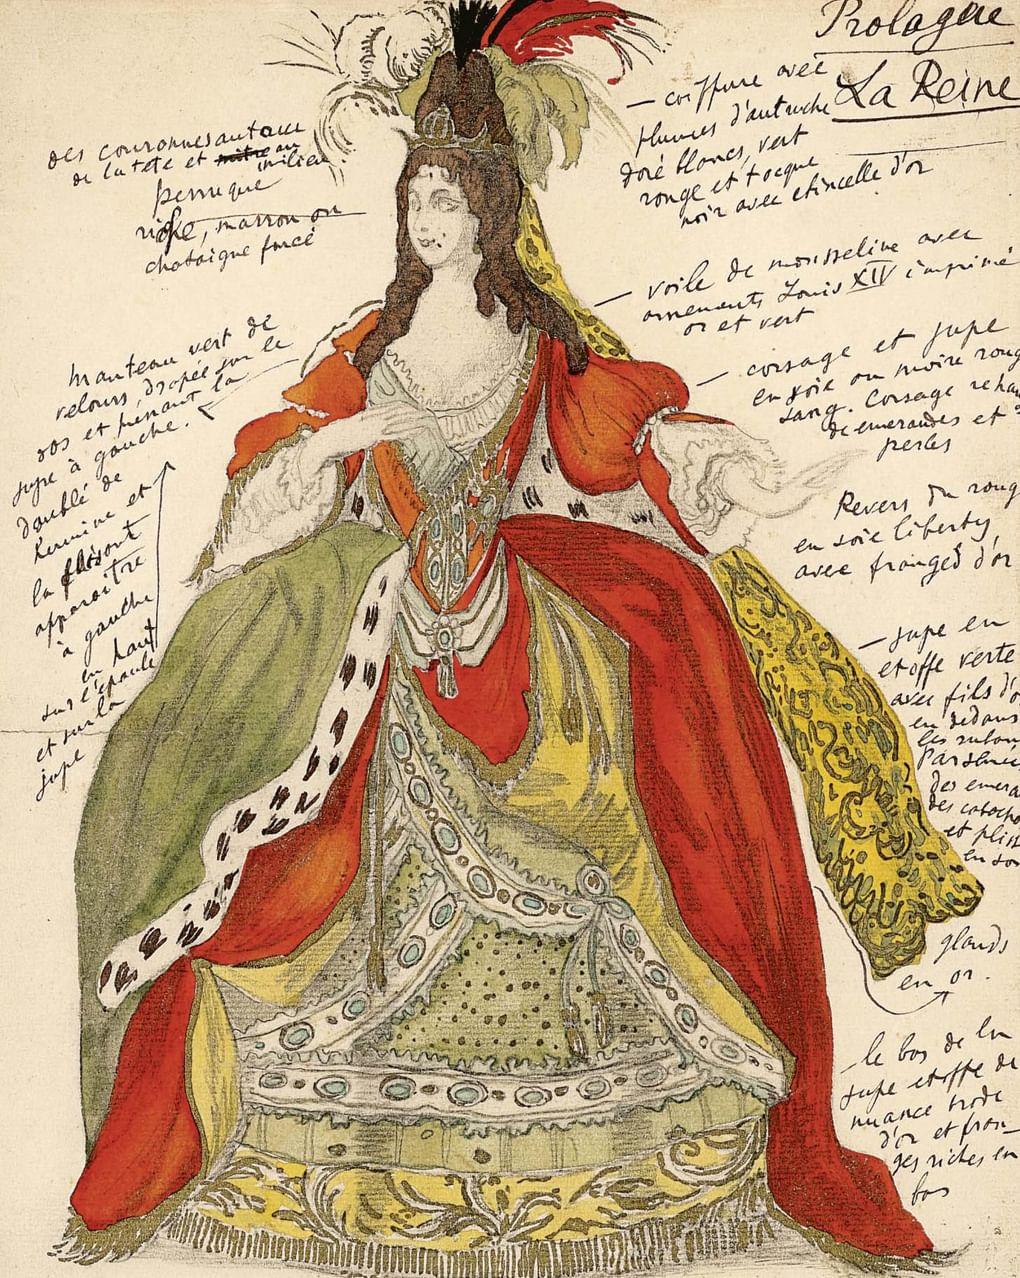 Prologue
La Reine
— coiffure avec
plumes d'autruche
doré blancs, vert
rouge et toque
noir avec etincelle d'or
des couronnes autour
de la tete et mitre au
milieu
perruque
riche, marron ou
chataigne foncé
— voile de mousseline avec
ornements Louis XIV imprimé
or et vert
— corsage et jupe
en soie ou moire roug
sang. Corsage reha
de emeraudes et
perles
manteau vert de
velours, drapée sur le
dos et prenant la
jupe à gauche.
doublé de
hermine et
la faisant
apparaitre
à gauche
en haut
sur l'épaule
et sur la
jupe
Revers du roug
en soie liberty
avec franges d'or
— jupe en
etoffe verte
avec fils d'o
en dedans
les ruban
des emera
des cabocho
et pliss
en
glands
en or.
— le bas de la
jupe etoffe de
nuance
d'or et fran-
ges riches en
bas